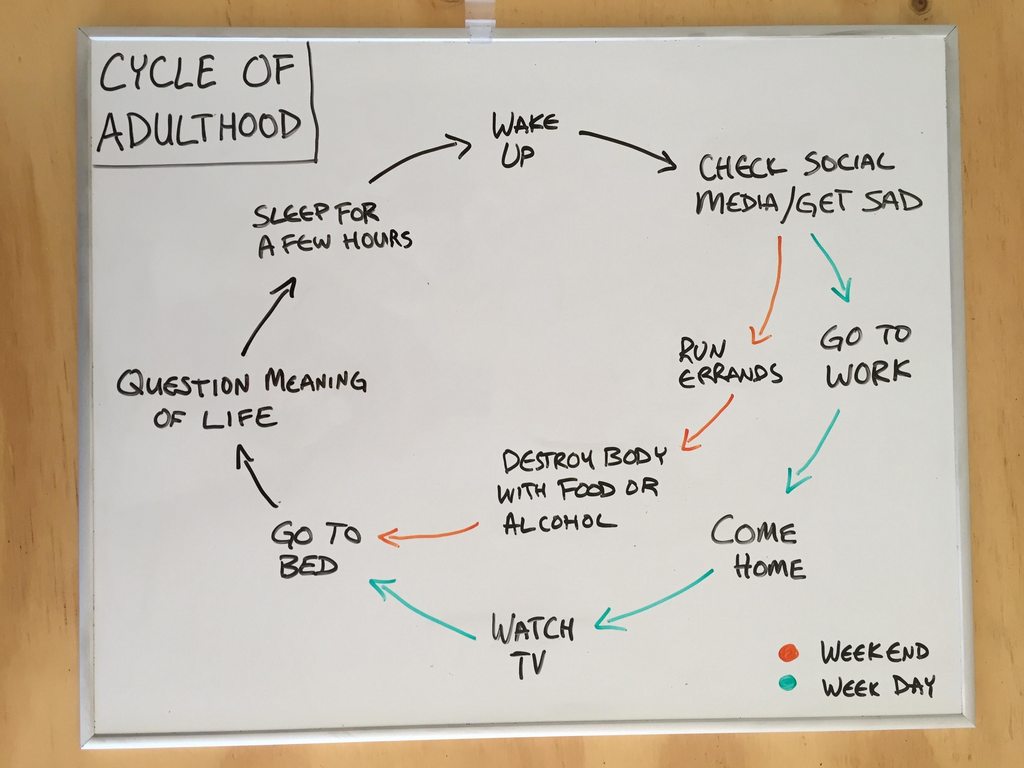 CYCLE OF
ADULTHOOD
WAKE
UP
CHECK SOCIAL
MEDIA/GET SAD
RUN
ERRANDS
GO TO
WORK
DESTROY BODY
WITH FOOD OR
ALCOHOL
COME
HOME
WATCH
TV
GO TO
BED
QUESTION MEANING
OF LIFE
SLEEP FOR
A FEW HOURS
WEEKEND
WEEK DAY